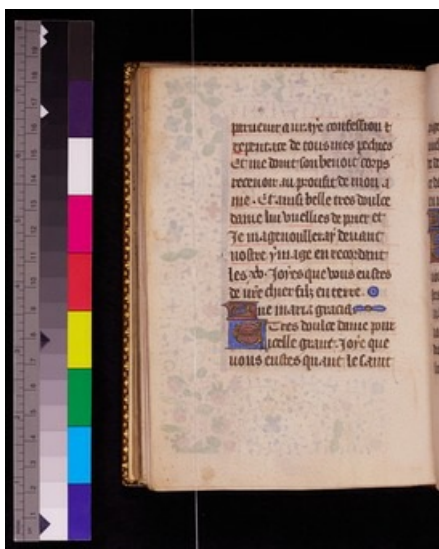 paruenir a uraye confession t
repentance de tous mes pechies
Et me doint son benoit corps
receuoir au proufit de mon a
me. Et aussi belle tres doulce
dame lui vueillies de prier et
Je magenoulleray deuant
uostre ymage en recordant
les xv. Joyes que vous eustes
de ure chier filz en terre.
Aue maria gracia
E Tres doulce dame pour
icelle grant Joye que
vous eustes quant le saint